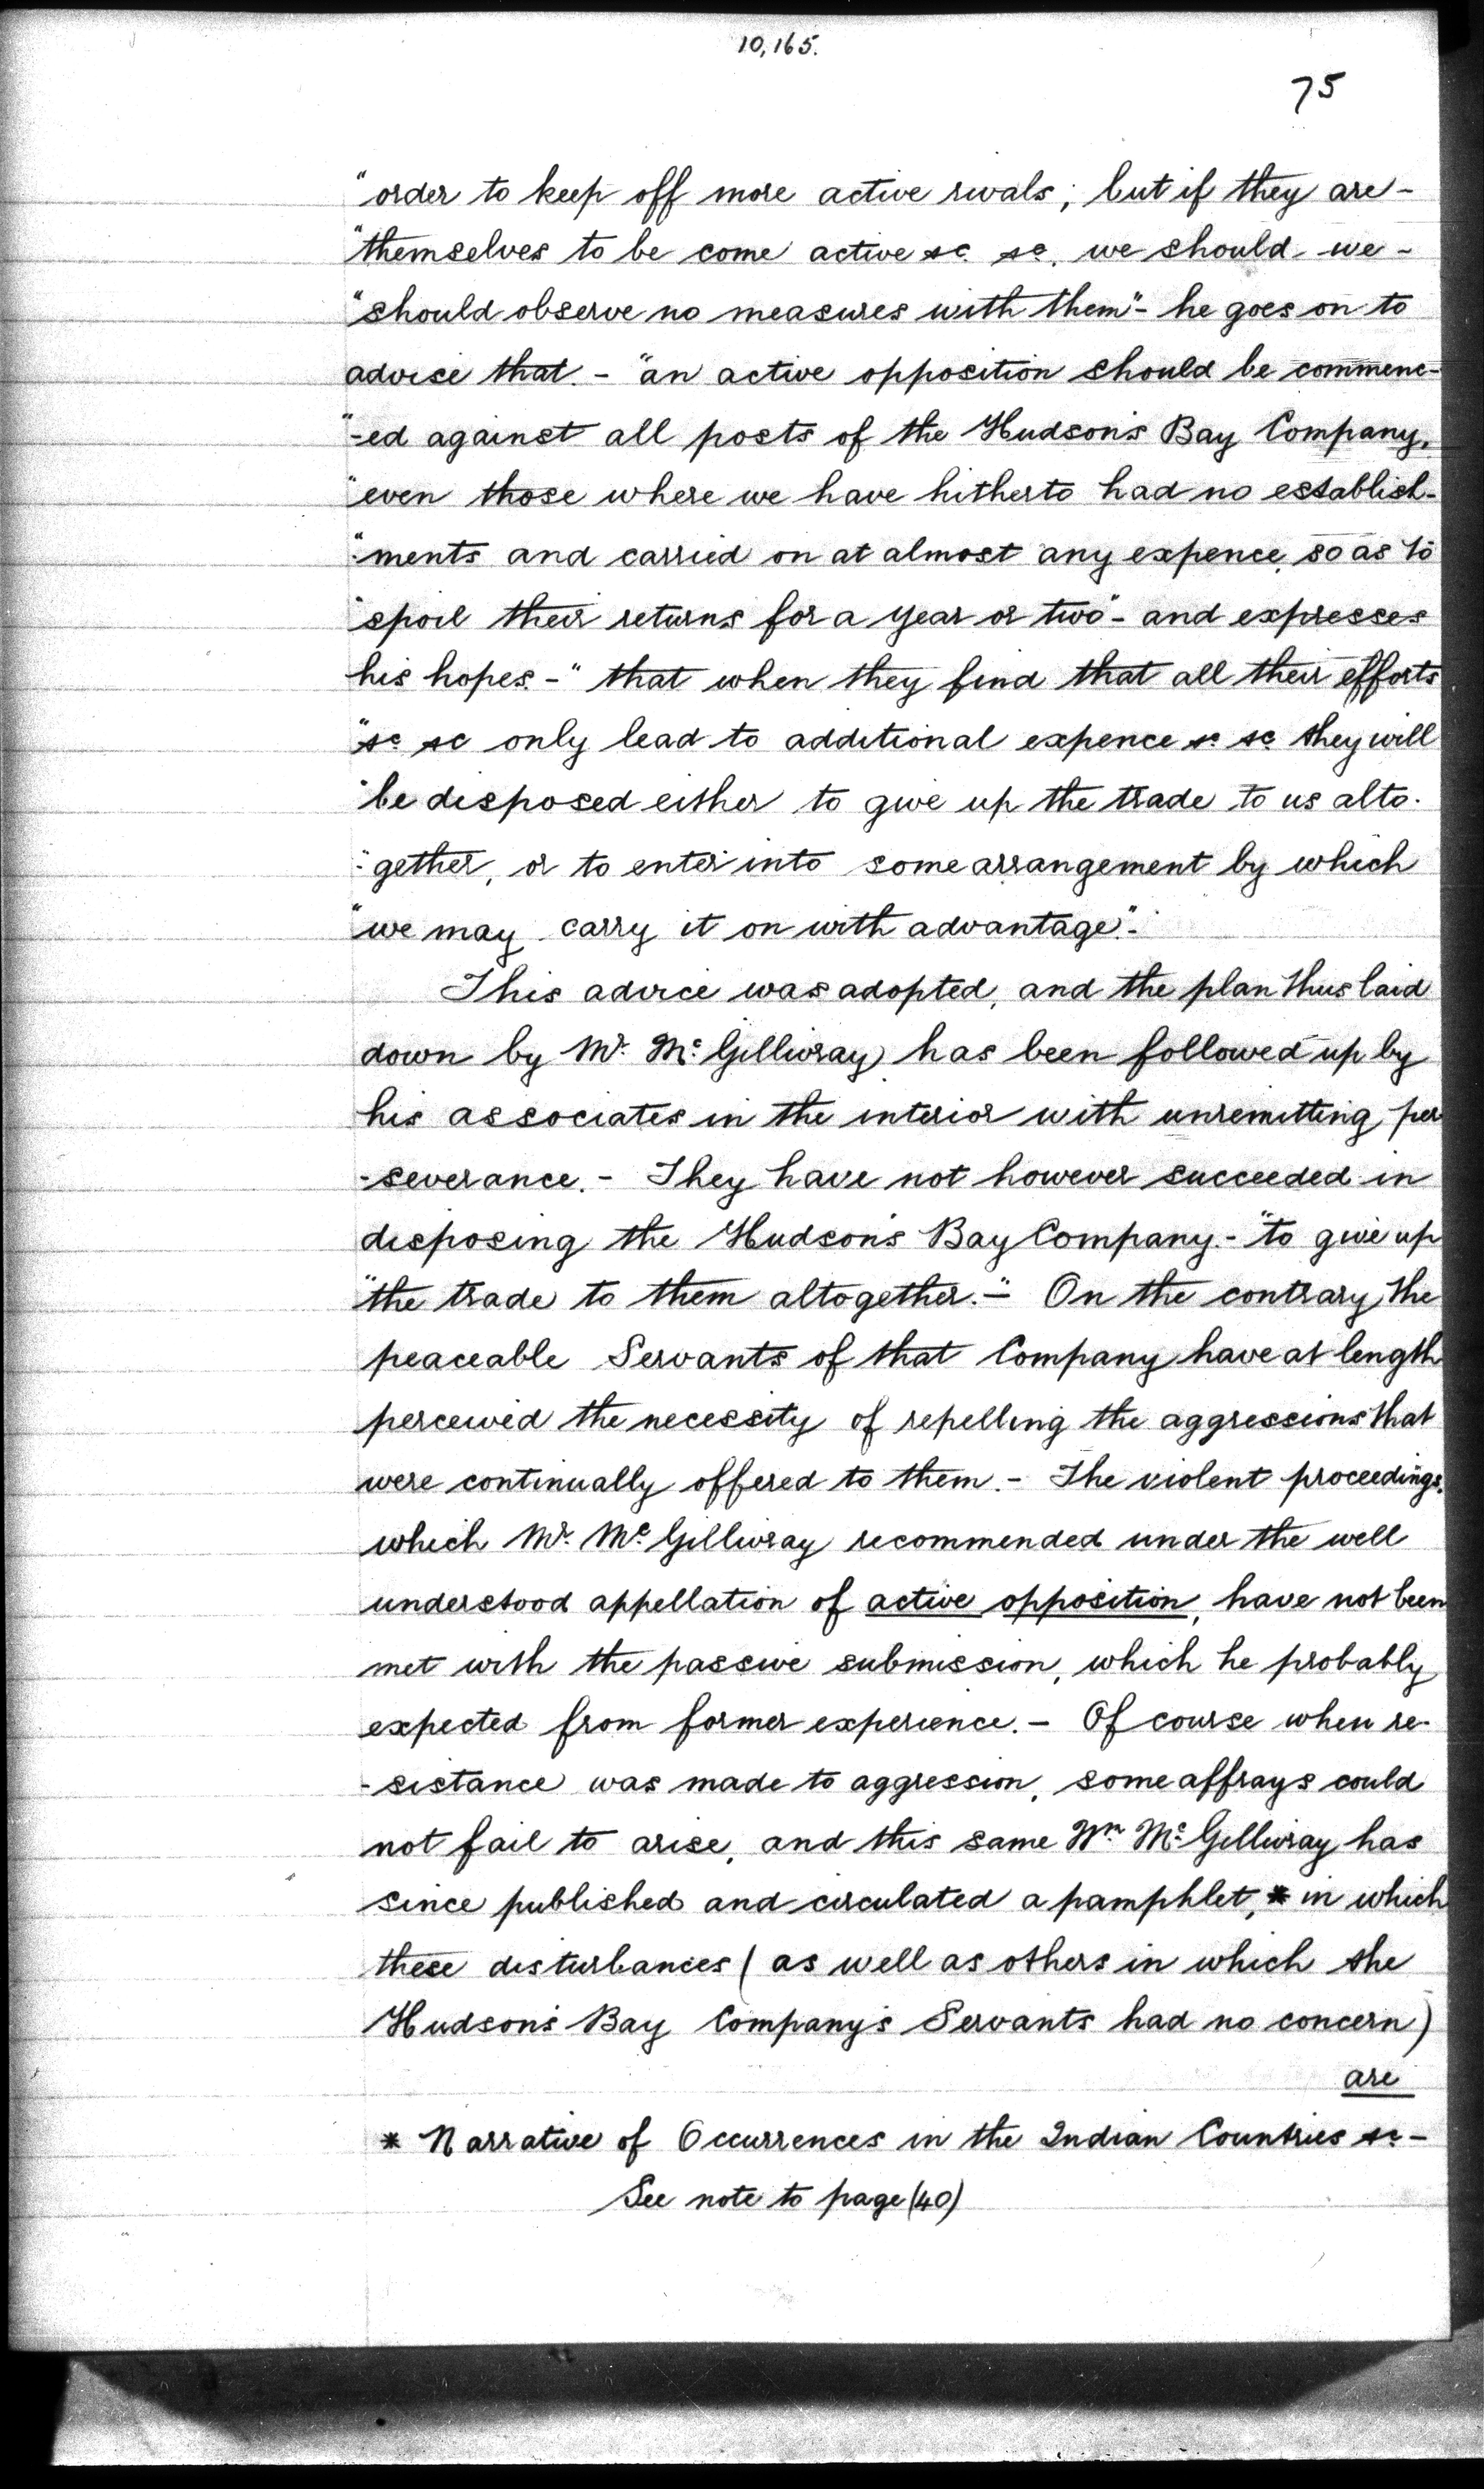 10,165.
75
"order to keep off more active rivals; but if they are -
"themselves to be come active &c &c. we should we -
"should observe no measures with them" - he goes on to
advise that. - "an active opposition should be commenc-
"-ed against all posts of the Hudson's Bay Company,
"even those where we have hitherto had no establish-
"ments and carried on at almost any expence, so as to
"spoil their returns for a year or two" - and expresses
his hopes - "that when they find that all their efforts
"&c &c only lead to additional expence &c &c they will
"be disposed either to give up the trade to us alto-
"gether, or to enter into some arrangement by which
"we may carry it on with advantage." -
This advice was adopted, and the plan thus laid
down by Mr. Mc. Gillivray has been followed up by
his associates in the interior with unremitting per
-severance. - They have not however succeeded in
disposing the Hudson's Bay Company. - "to give up
"the trade to them altogether." - On the contrary, the
peaceable Servants of that Company have at length
perceived the necessity of repelling the aggressions that
were continually offered to them. - The violent proceedings,
which Mr. Mc. Gillivray recommended under the well
understood appellation of active opposition, have not been
met with the passive submission, which he probably
expected from former experience. - Of course when re-
-sistance was made to aggression, some affrays could
not fail to arise, and this same Wm Mc. Gillivray has
since published and circulated a pamphlet, * in which
these disturbances (as well as others in which the
Hudson's Bay Company's Servants had no concern)
are
* Narrative of Occurrences in the Indian Countries &c -
See note to page (40)